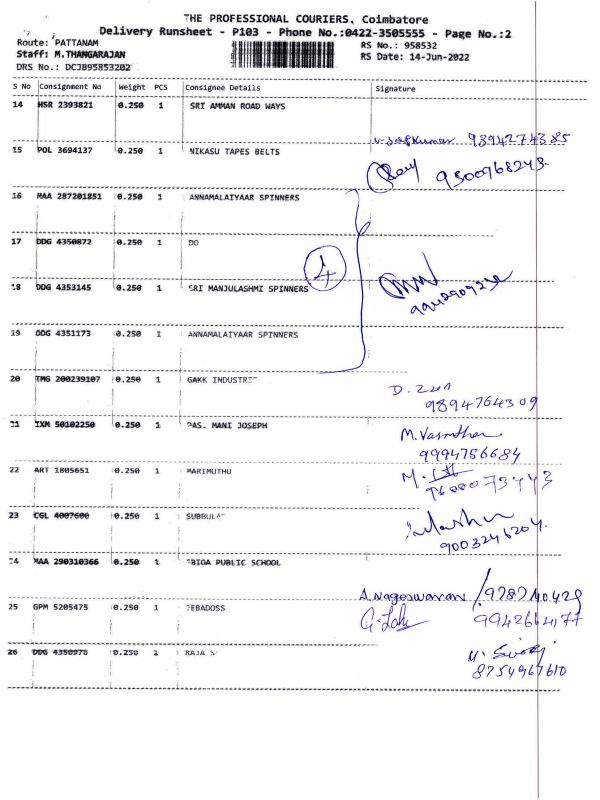 THE PROFESSIONAL COURIERS, Coimbatore
Delivery Runsheet - P103 - Phone No.:0422-3505555 - Page No.:2
Route: PATTANAM RS No.: 958532
Staff: M.THANGARAJAN RS Date: 14-Jun-2022
DRS No.: DCJB95853202
S No Consignment No Weight PCS Consignee Details Signature
14 HSR 2393821 0.250 1 SRI AMMAN ROAD WAYS
9894274385
15 POL 3694137 0.250 1 NIKASU TAPES BELTS
9500968243
16 MAA 287201851 0.250 1 ANNAMALAIYAAR SPINNERS
17 DDG 4350872 0.250 1 DO
4
18 DDG 4353145 0.250 1 SRI MANJULASHMI SPINNERS
19 DDG 4351173 0.250 1 ANNAMALAIYAAR SPINNERS
20 TMG 200239107 0.250 1 GAKK
9894764309
21 IXM 50102250 0.250 1 PAS. MANI JOSEPH
M. Vasantha
9994756684
22 ART 1805651 0.250 1 MARIMUTHU
23 CGL 4007600 0.250 1
9003246204
24 MAA 290310366 0.250 1 PUBLIC SCHOOL
A. Nageswaran
25 GPM 5205475 0.250 1 JEBADOSS
9942664177
26 DDG 4350978 0.250 1 RAJA
8754967610